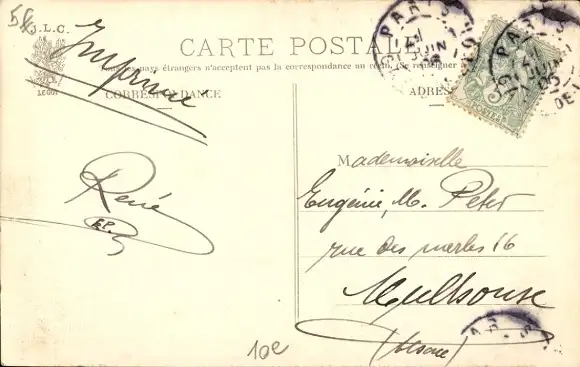 58
J.L.C.
Imprimé
CARTE POSTALE
pays étrangers n'acceptent pas la correspondance au recto. (Se renseigner
CORRESPONDANCE
ADRES
PARIS
JUIN
PARIS
JUIN
René
Mademoiselle
Eugénie, M. Peter
rue des merles 16
Mulhouse
(Alsace)
10e